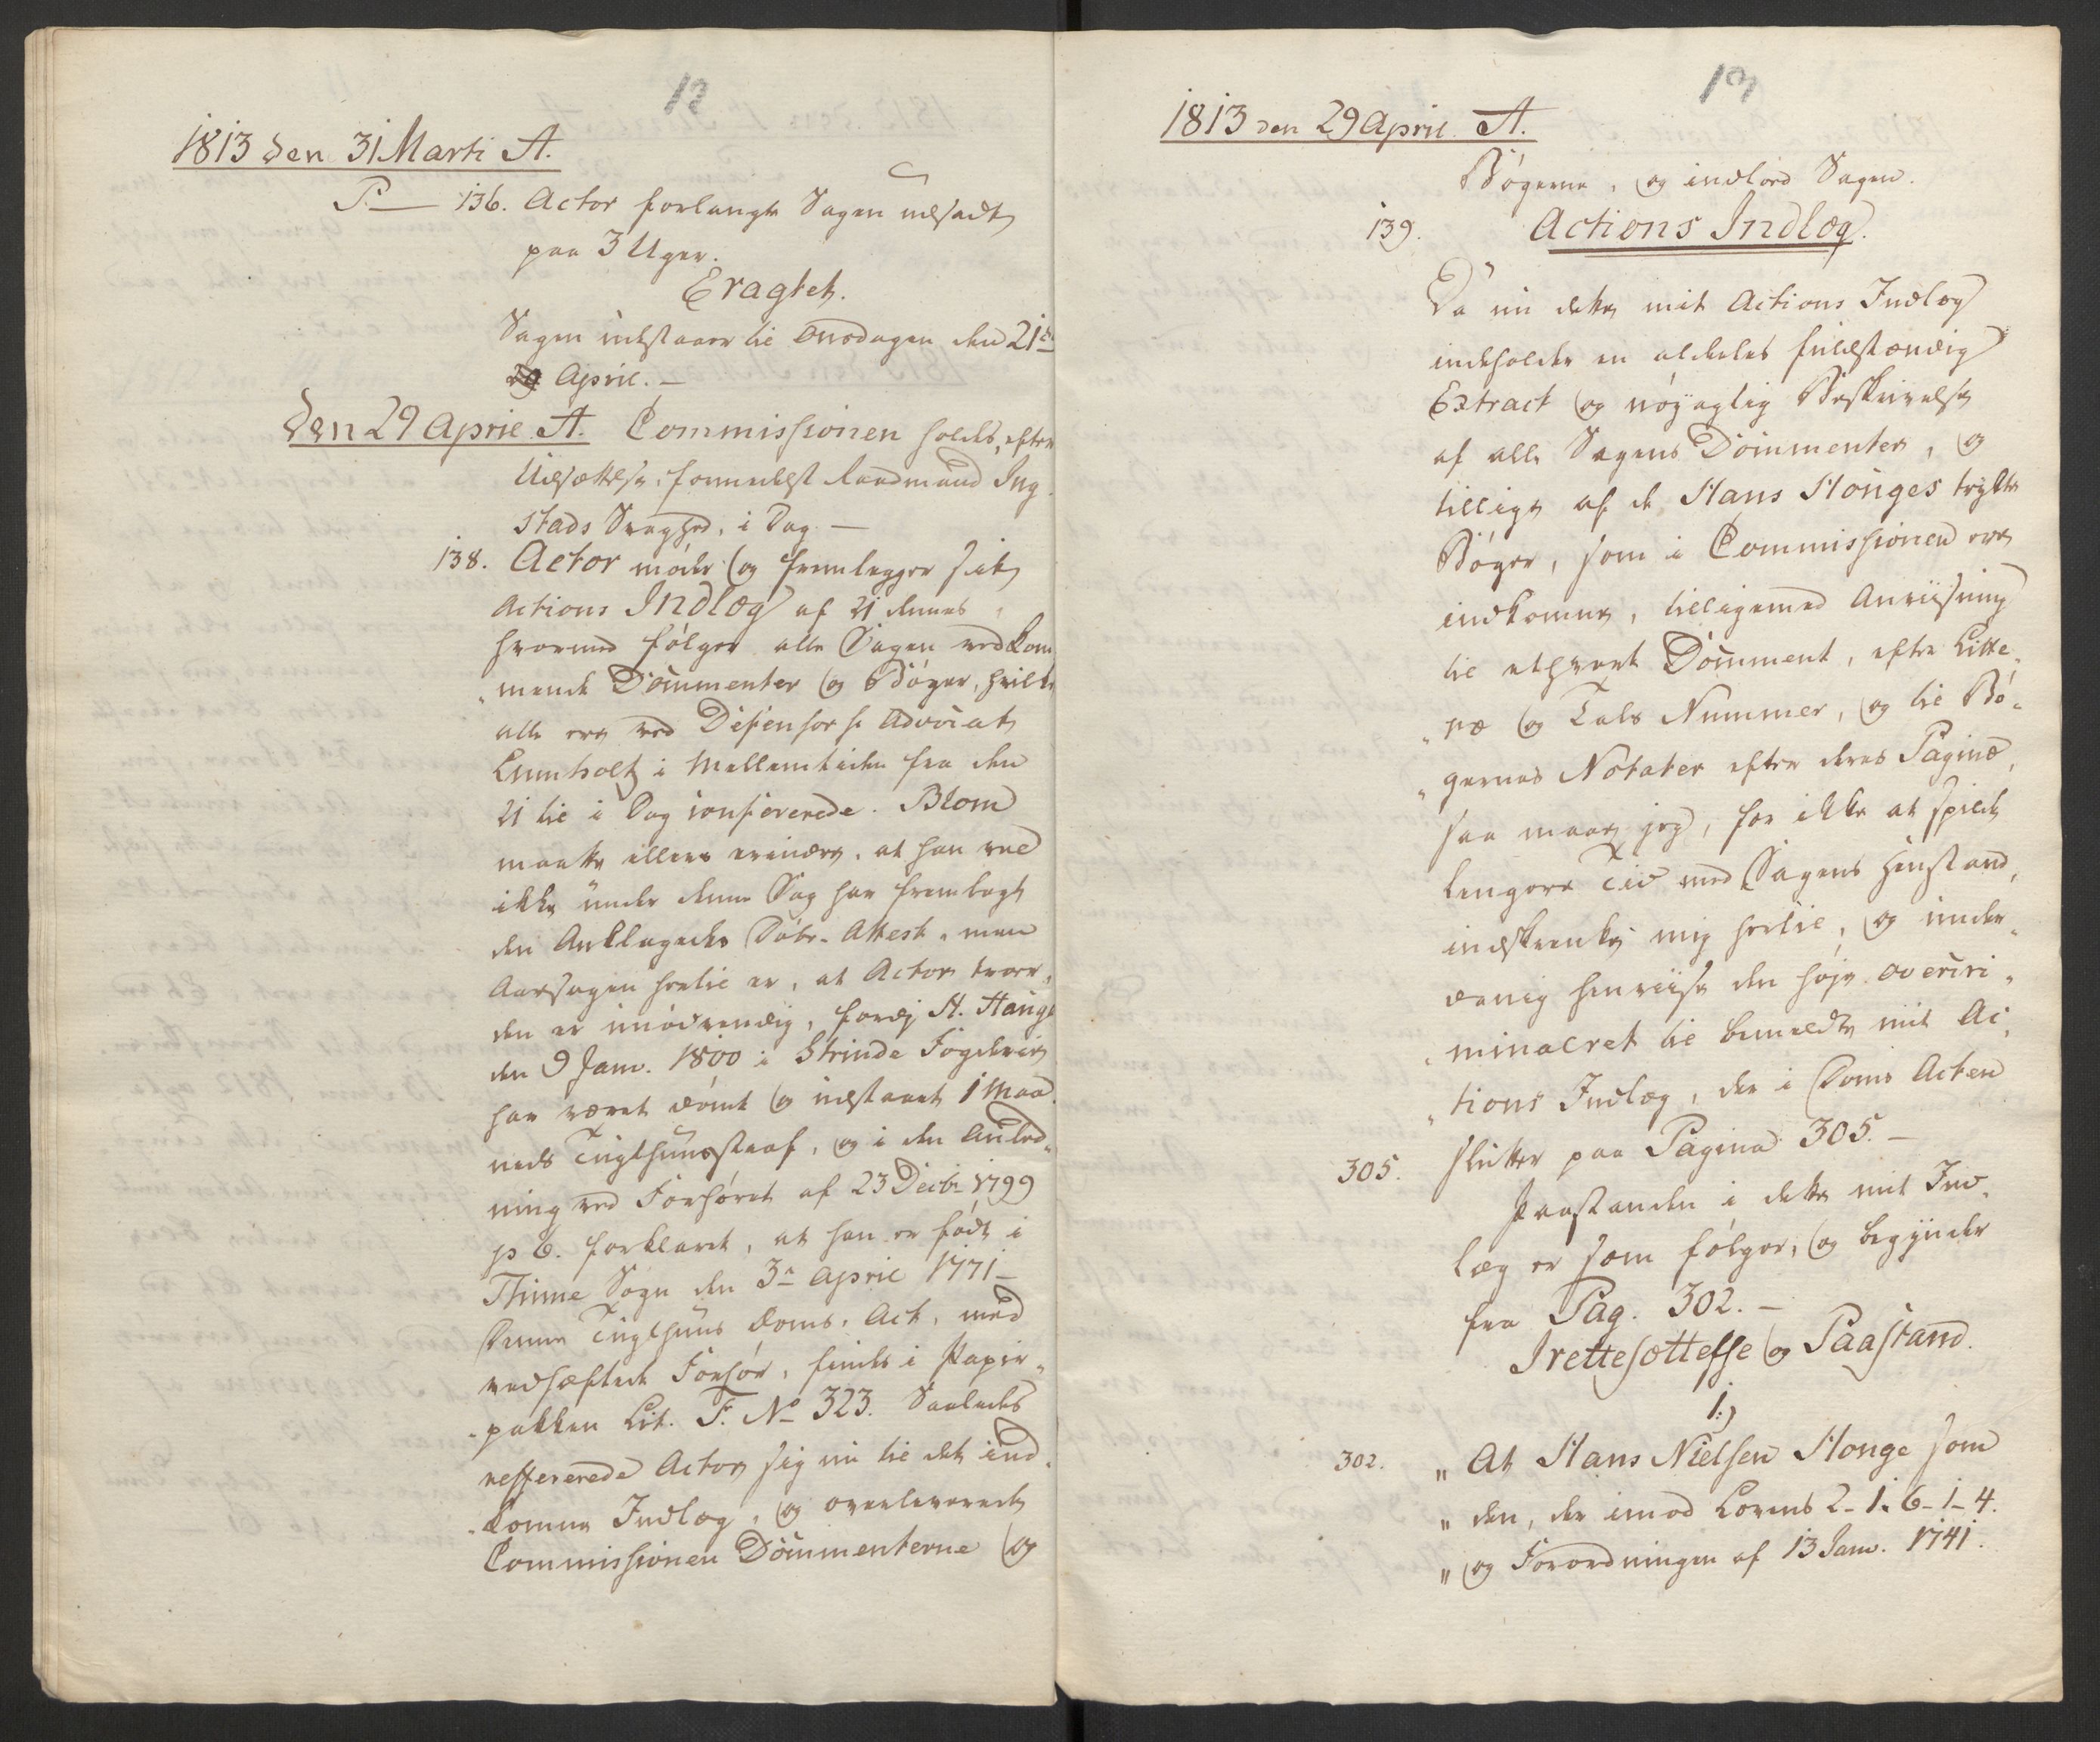 12
1813 den 31 Marti A.
P. — 136. Actor forlangte Sagen udsadt
paa 3 Uger.
Eragtet.
Sagen udstaaer til Onsdagen den 21de
April. —
Den 29 April A. Commissionen holdes, efter
Udsættelse, formedelst Laudmand Ing
stads Svaghed, i Dag —
138. Actor møder og fremlegger sit
Actions Indlæg af 21 dennes,
hvormed følger alle Sagen vedkom
„mende Documenter og Bøger, hvilke
alle ere ved Defensor Hr Advocat
Lumholtz i Mellemtiden fra den
21 til i Dag confererede. Blom
maatte ellers erindre, at han vel
ikke under denne Sag har fremlagt
den Anklagedes Døbe-Attest, men
Aarsagen hertil er, at Actor troer,
den er unødvendig, fordj H. Hauge
den 9 Janv. 1800 i Strinde Fogderie
har været dømt og udstaaet 1 Maa
neds Tugthuusstraf, og i den Anled„
ning ved Forhøret af 23 Decbr 1799
p 6. forklaret, at han er født i
Thune Sogn den 3de April 1771 —
Denne Tugthuus Doms-Act, med
vedhæftede Forhør, findes i Papir„
„pakken Lit. F. No 323. Saaledes
refererede Actor sig nu til det ind„
„komne Indlæg, og overleverede
Commissionen Documenterne og
13
1813 den 29 April A.
Bøgerne, og indlod Sagen.
139. Actions Indlæg.
Da nu dette mit Actions Indlæg
indeholder en aldeles fuldstændig
Extract og nøyagtig Beskrivelse
af alle Sagens Documenter, og
tillige af de Hans Houges trykte
Bøger, som i Commissionen ere
indkomne, tilligemed Anviisning
til ethvert Document, efter Litte„
„ræ og Tals Nummer, og til Bø„
„gernes Notater efter deres Paginæ,
saa maae jeg, for ikke at spilde
længere Tid med Sagens Henstand,
indskrænke mig hertil, og under„
danig henviise den høje Overcri„
„minalret til bemeldte mit Ac„
„tions Indlæg, der i Doms Acten
305. slutter paa Pagina 305. —
Paastanden i dette mit Ind„
læg er som følger, og begynder
fra Pag. 302. —
Irettesættelse og Paastand.
1.)
302. „ At Hans Nielsen Houge som
„ den, der imod Lovens 2-1. 6-1-4.
„ og Forordningen af 13 Janv. 1741.